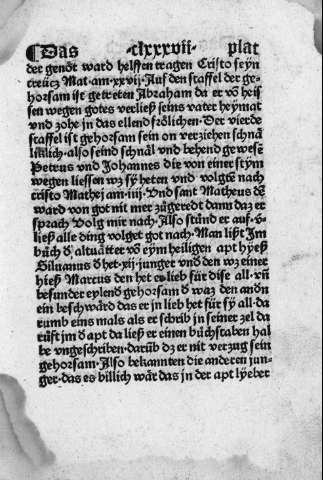 Das ·clxxxvii· plat
der genöt ward helffen tragen Cristo seyn
creücz Mat·am·xxvij·Auf den staffel der ge-
horsam ist getreten Abraham da er vō heis
sen wegen gotes verließ seins vater heymat
vnd zohe in das ellend frölichen·Der vierde
staffel ist gehorsam sein on verziehen schnǟ
lklich·also seind schnǟl vnd behend gewesē
Petrus vnd Johannes die von einer stym
wegen liessen wz sy heten vnd volgtē nach
cristo Mathej am·iiij·Vnd sant Matheus dē
ward von got nit mer zügeredt dann daz er
sprach Volg mir nach·Also stünd er auf·v̄-
ließ alle ding volget got nach·Man lißt Jm
büch ð altuätter vō eym heiligen apt hyeß
Siluanus ð het·xij·junger vnd den wz einer
hieß Marcus den het es lieb für dise all·vn̄
besunder eylend gehorsam ð waz den andn̄
ein beschwärd das er jn lieb het für sy all·da
rumb eins mals als er schrib in seiner zel da
rüft jm ð apt da ließ er einen büchstaben hal
be vngeschriben·darūb dz er nit verzug sein
gehorsam·Also bekannten die anderen jun-
ger·das es billich wär das jn der apt lyeber